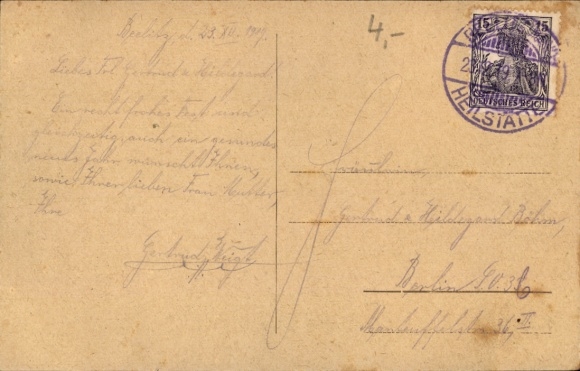 4,-
15 15
DEUTSCHES REICH
HEILSTÄTTEN
Beelitz d. 23. XII. 1919.
Liebes Frl. Gertrud u. Hildegard!
Ein recht frohes Fest und
gleichzeitig auch ein gesundes
neues Jahr wünscht Ihnen,
sowie Ihrer lieben Frau Mutter,
Ihre
Gertrud
Fräulein
Gertrud u. Hildegard Böhm,
Berlin S.O. 36
Manteuffelstr. 36, III